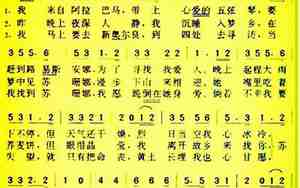 1. 我 来自 阿拉 巴马，带 上 心爱的 五弦 琴，要
2. 昨 晚上 夜深 人 静，我 沉睡 入梦 乡，在
3. 我 马上 要去 新奥尔良，到 四处 去寻 访，当
3 5 5· 6 5 3 1 2 3 3 2 2 1· 1 2 3 5 5· 6
赶到路 易斯 安娜，为了 寻找 我爱 人。晚上 起程大雨
梦中见 苏 珊娜，漫步 下山 来相 迎。她 嘴里吃着
我找到 苏 珊娜，我愿 跪倒在她身 旁。倘若 不幸我要
5 3 1· 2 3 3 2 2 1 2 0 1 2 3 5 5· 6 5 3 1· 2
下不停，但 天气还干 燥， 烈 日当空我 心冰冷，
荞麦饼，但 眼泪晶 莹， 我 离开故乡 来 找你，苏
失望，就 只有把命 丧，黄土 云埋 我也 心甘愿，